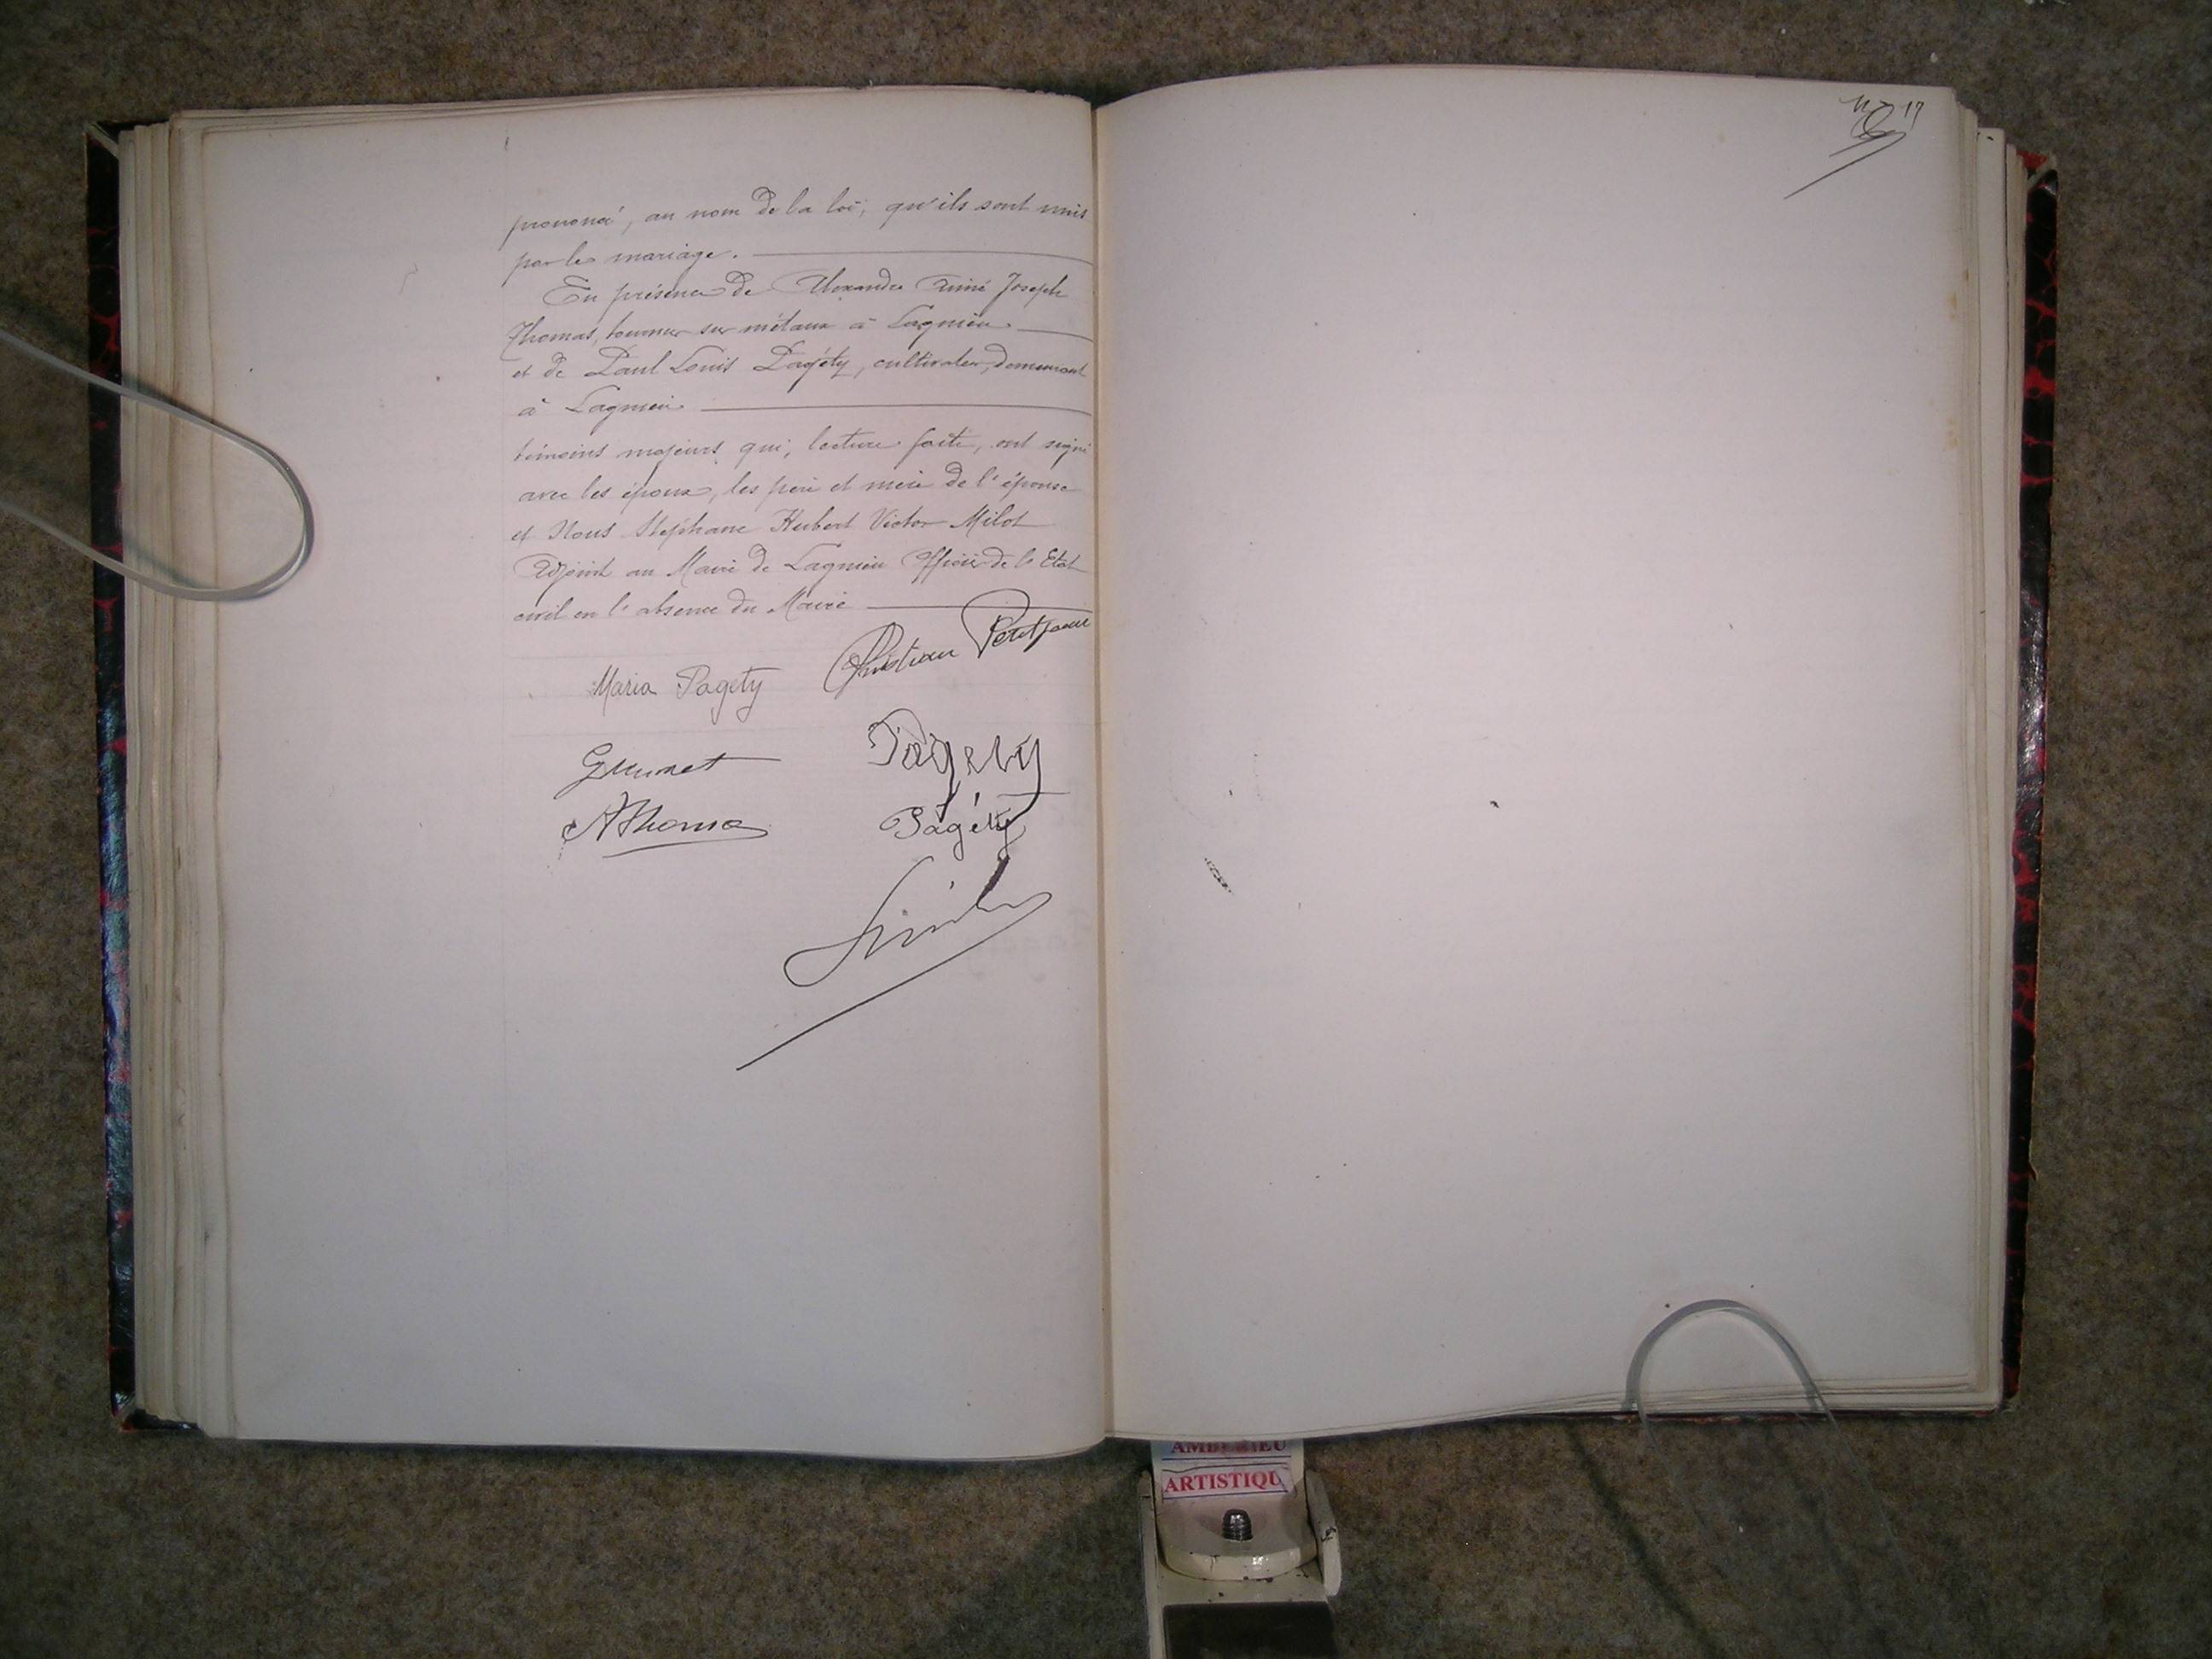 prononcé, au nom de la loi, qu'ils sont unis
par le mariage.
En présence de Alexandre Aimé Joseph
Thomas, tourneur sur métaux à Lagnieu
et de Paul Louis Pagéty, cultivateur, demeurant
à Lagnieu
témoins majeurs qui, lecture faite, ont signé
avec les époux, les père et mère de l'épouse
et Nous Stéphane Hubert Victor Milot
Adjoint au Maire de Lagnieu Officier de l'Etat
civil en l'absence du Maire
Christian Petitjean
Maria Pagéty
Pagety
AThomas
Pagéty
17
AMBERIEU
ARTISTIQU